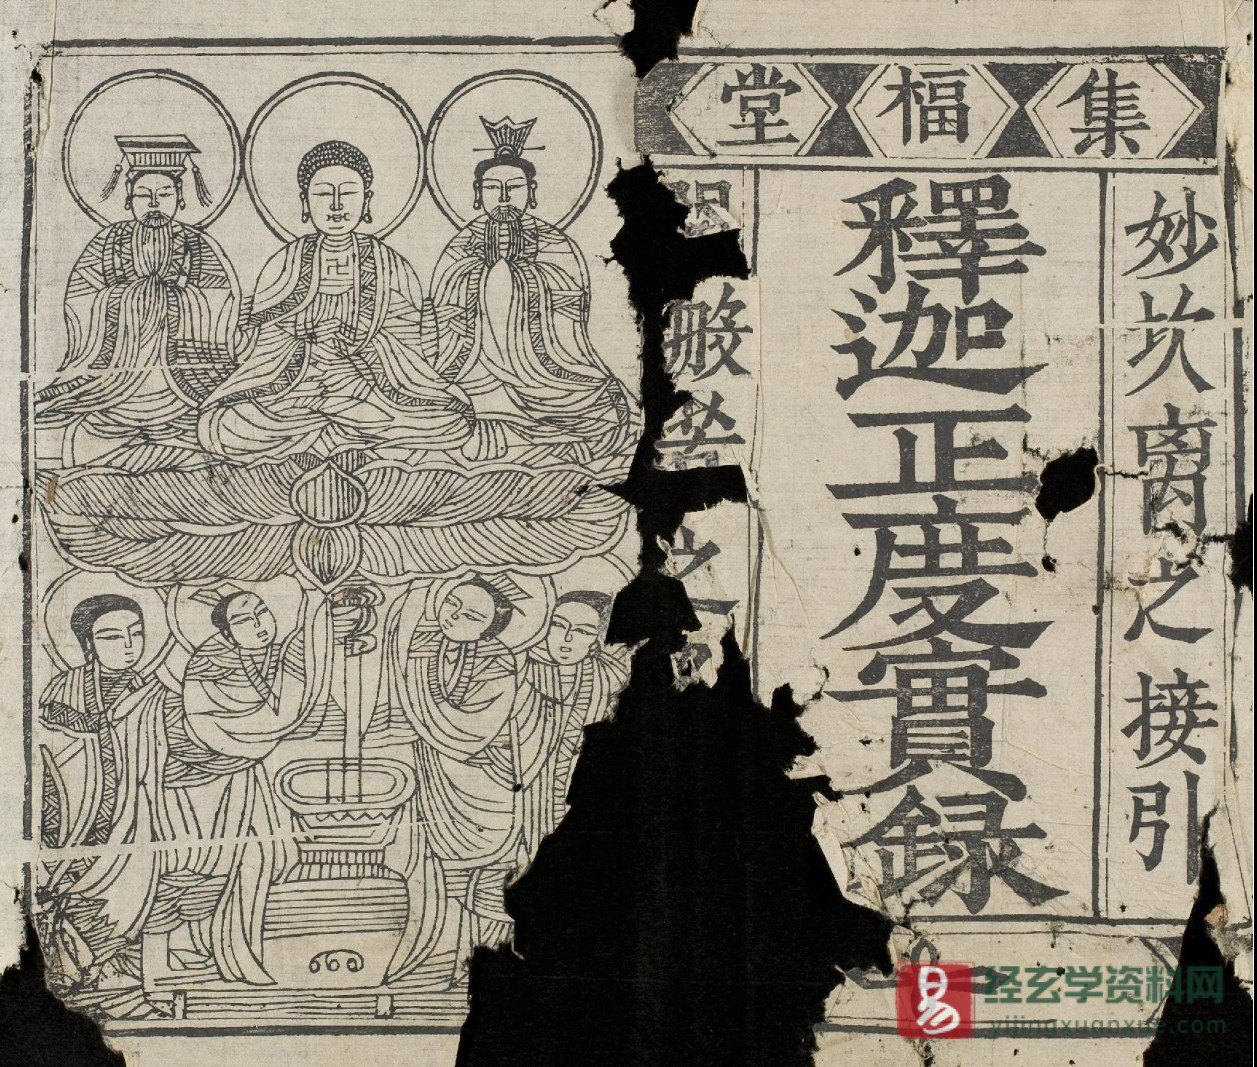 集福堂
妙坎离之接引
釋迦正度實録
般若之
易
经玄学资料网
yijingxuanxue.com